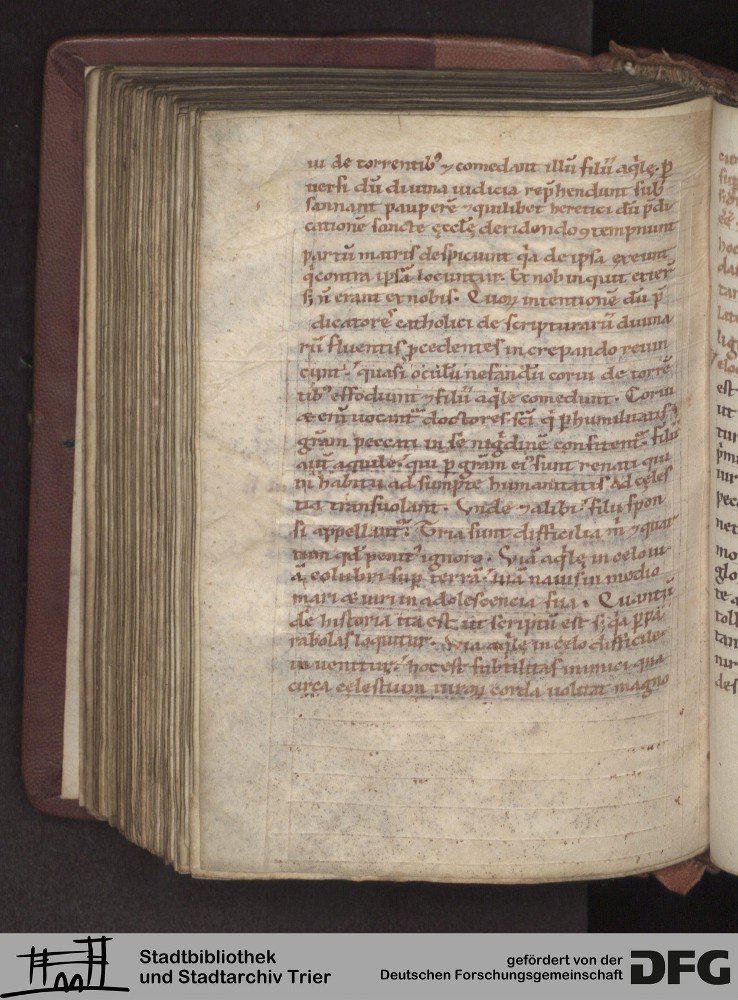 ui de torrentib⁹ ⁊ comedant illū filii aq̄lę. ꝑ
uersi dū diuina iudicia rep̄hendunt sub
sannant pauperē ⁊ quilibet heretici dū p̄di
cationē sanctę ęcclę deridendo ꝯtempnunt
partū matris despiciunt q̄a de ipsa exeunt
q̄ contra ipsā locuntur. Et nob inquit
s; ñ erant ex nobis. Quoꝝ intentionē dū p̄
dicatores catholici de scripturarū diuina
rū fluentis ꝓcedentes increpando reuin
cunt. quasi oculū nefandū corui de torrē
tib⁹ effodiunt ⁊ filii aq̄lę comedunt. Corui
enī uocant doctores sc̄i q̄ ꝑ humilitatis
grām peccati in se nigdinē confitent. filii
aut aquile. qui ꝑ grām ei⁹ sunt renati qui
habitu adsumptę humanitatis ad cęles
tia transuolant. Vnde ⁊ alibi filii spon
si appellant. Tria sunt difficilia m̄ ⁊ quar
tum qd penit⁹ ignoro. Viā aq̄lę in celo ui
ā colubri sup terrā. uiā nauis in medio
mari & uiri in adolescencia sua. Quantū
de historia ita est. ut scriptū est s; q̄a ꝑ pa
rabolas loquitur. Via aq̄lę in cęlo difficile
inuenitur. hoc est subtilitas inimici. quia
circa celestium uiroꝝ corda uolitat magno
Stadtbibliothek
und Stadtarchiv Trier
gefördert von der
Deutschen Forschungsgemeinschaft
DFG